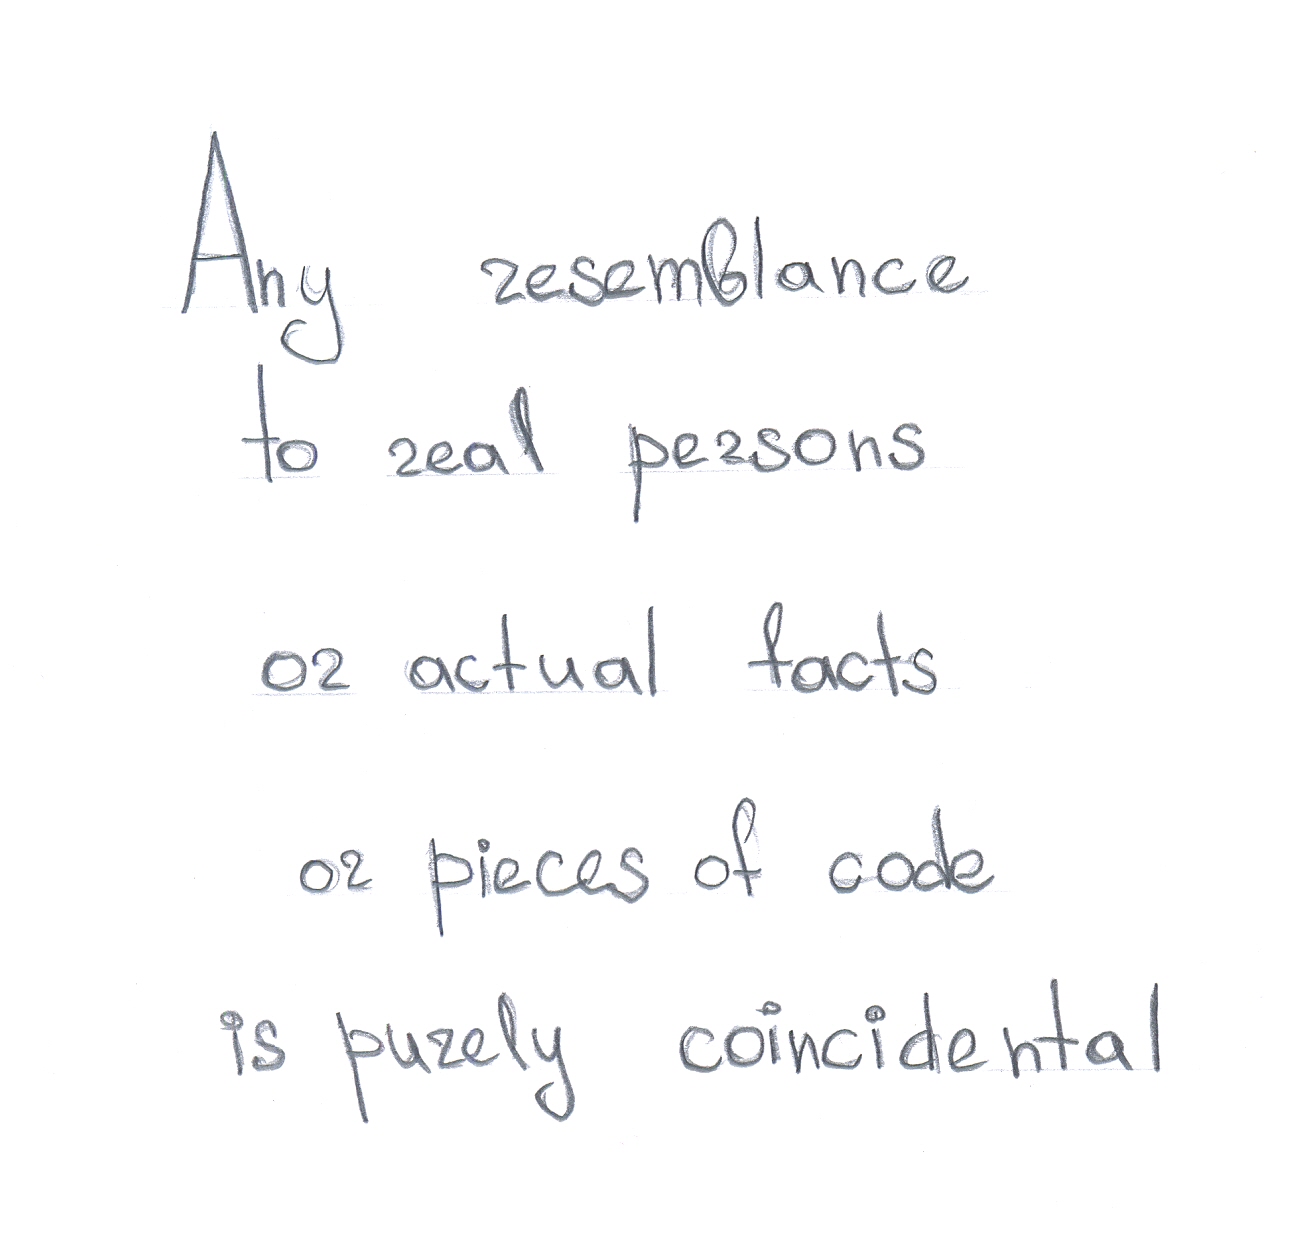 Any resemblance
to real persons
or actual facts
or pieces of code
is purely coincidental